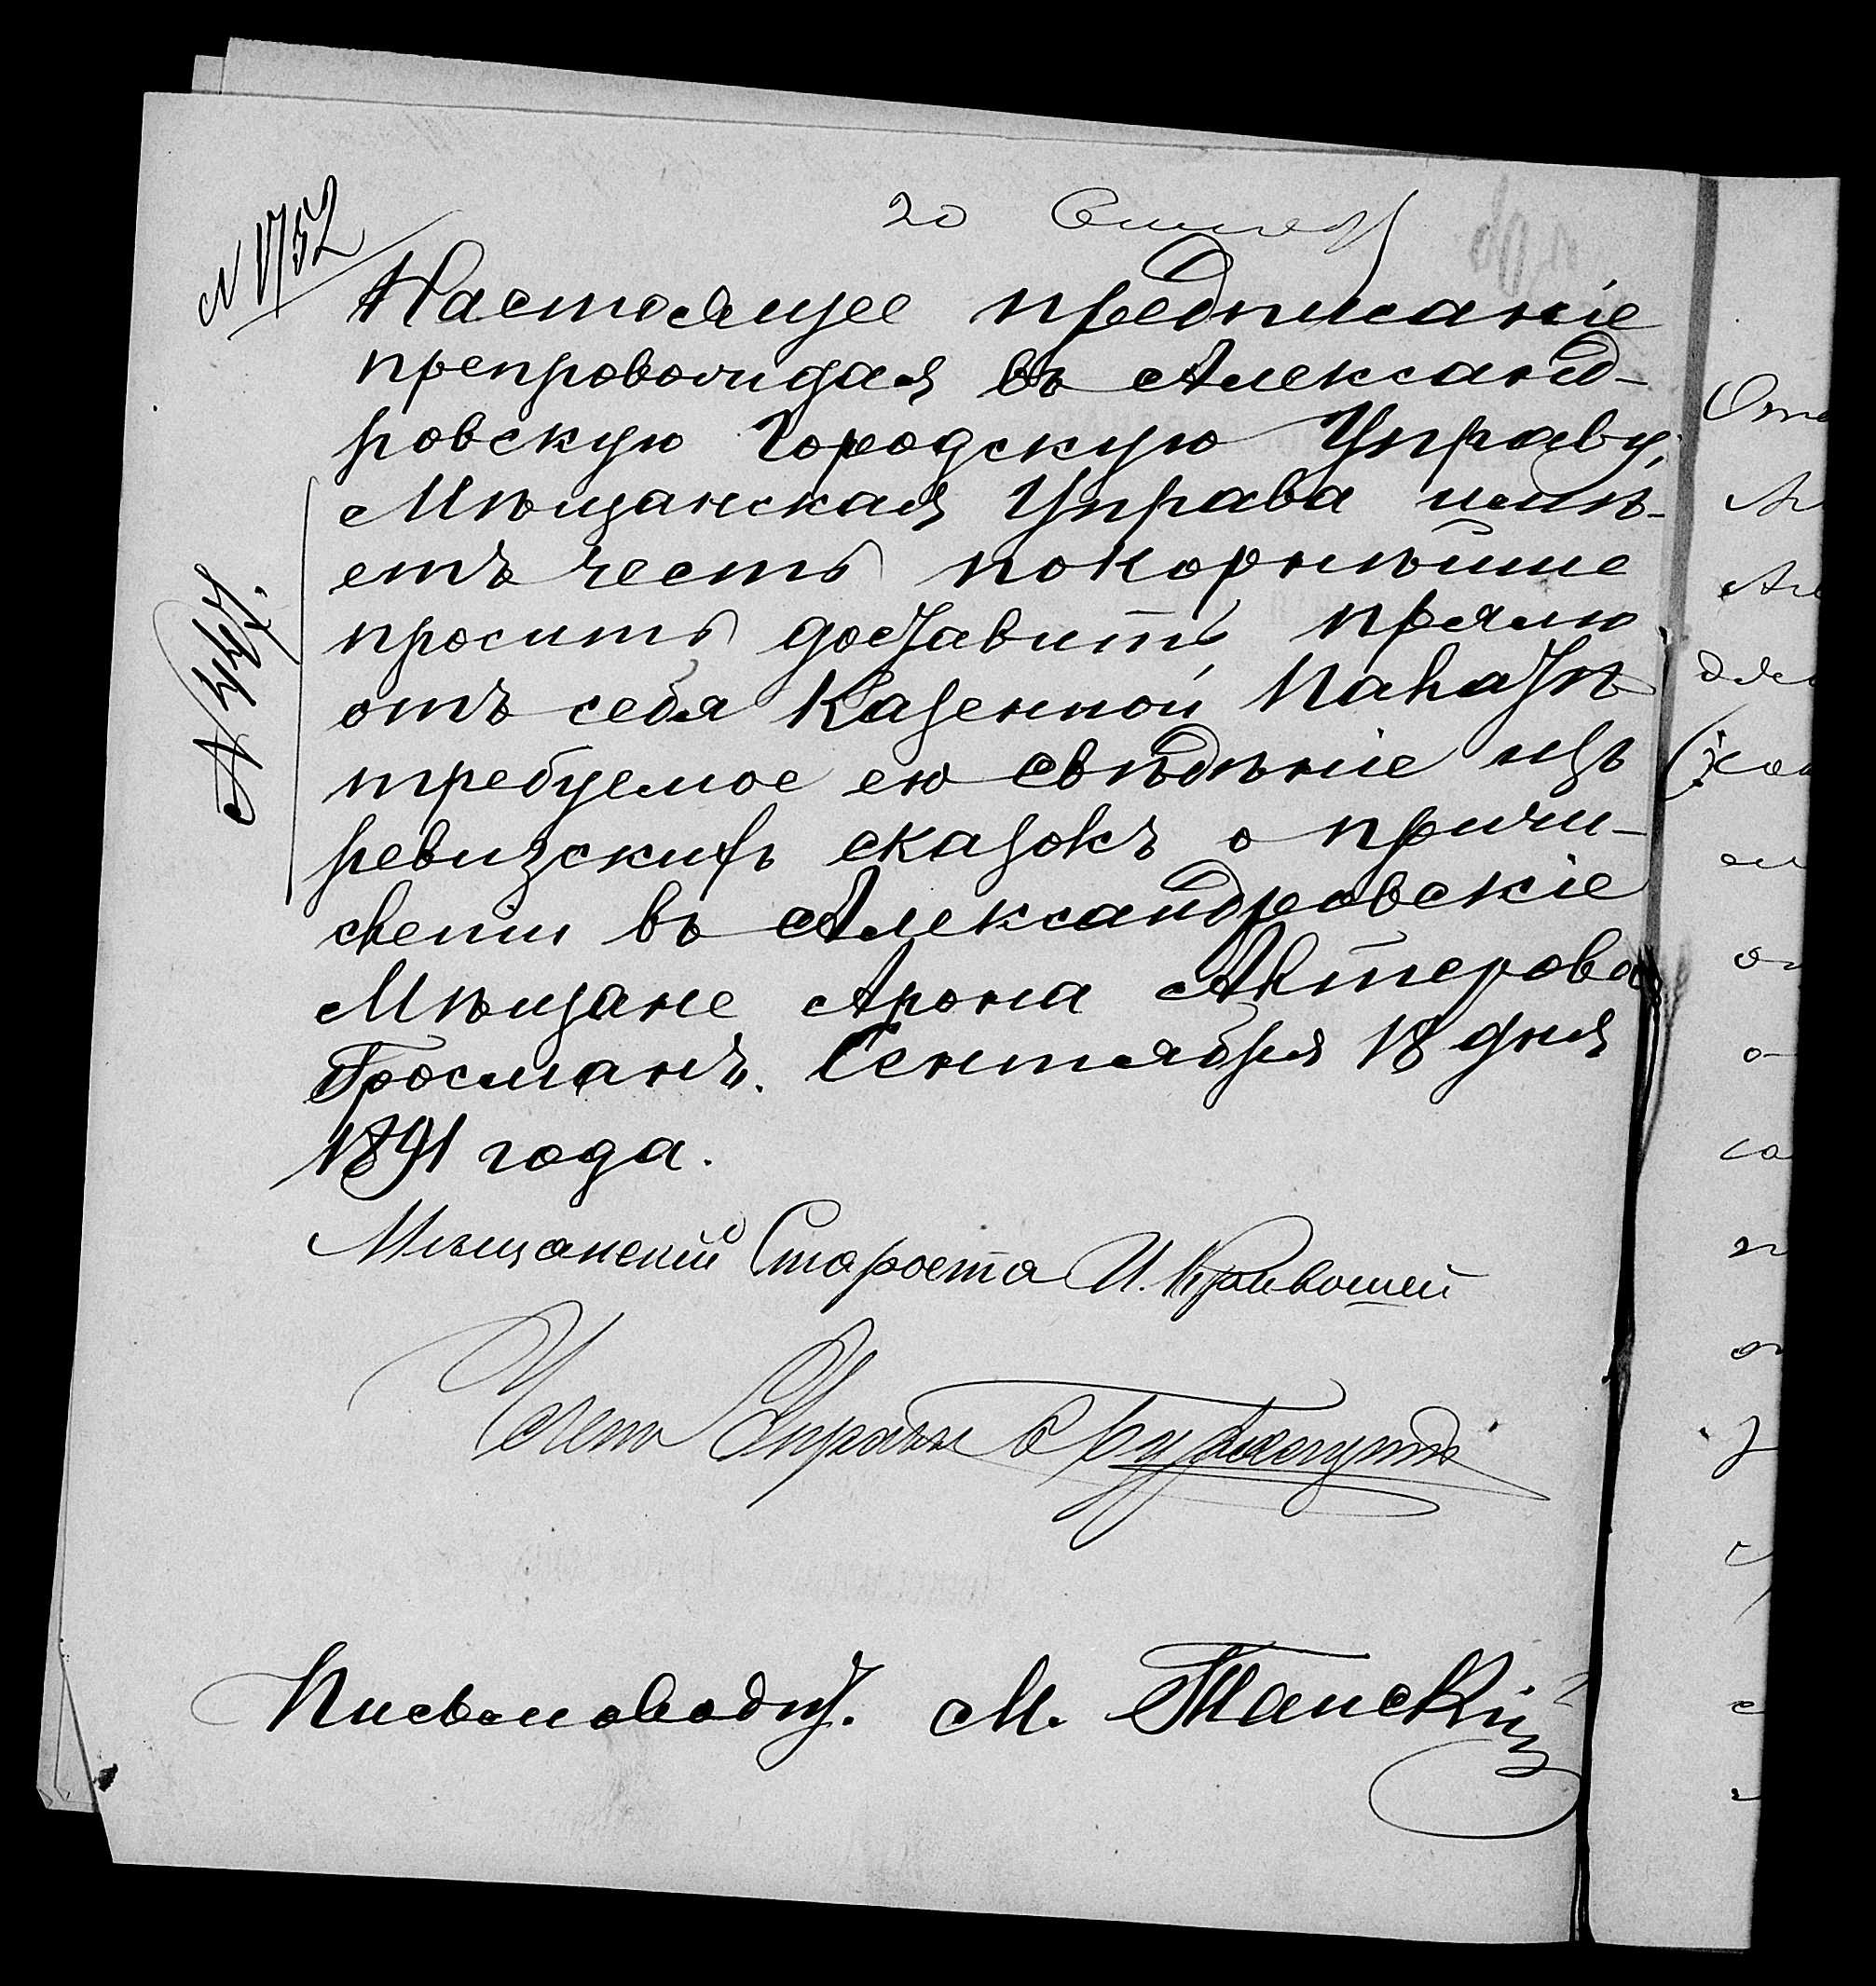 № 1752
20 Сентяб
Настоящее предписаніе
препровождая въ Александ-
ровскую Городскую Управу,
Мѣщанская Управа имѣ-
етъ честь покорнѣйше
просить доставить прямо
отъ себя Казенной Палатѣ
требуемое ею свѣдѣніе изъ
ревизскихъ сказокъ о причи-
сленіи въ Александровскіе
Мѣщане Арона Актерова
Гросманъ. Сентября 18 дня
1891 года.
Мѣщанскій Староста И. Кривошей
Членъ Управы
Письмоводит. М. Танскій